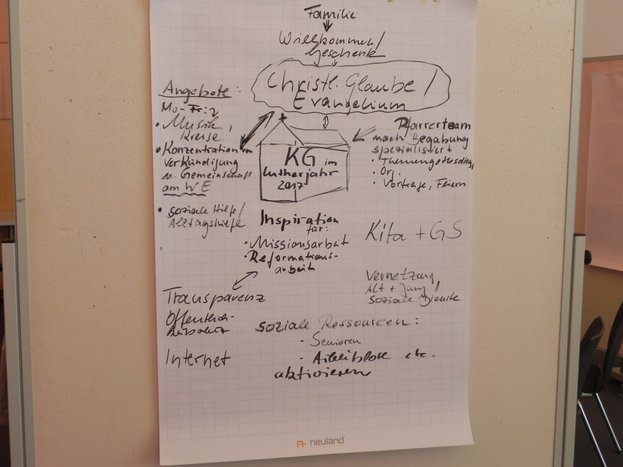 Familie
Willkommen/
Geschenk
Christl. Glaube/
Evangelium
Angebote:
Mo-Fr:
• Musik,
Kreise
• Konzentration
Verkündigung
u. Gemeinschaft
am WE
• soziale Hilfe/
Alltagshilfe
KG im
Lutherjahr
2017
Pfarrerteam
nach Begabung
spezialisiert
• Themengottesd.
• Org.
• Vorträge, Feiern
Inspiration
für:
• Missionsarbeit
• Reformations-
arbeit
Kita + GS
Vernetzung
Alt + Jung/
soziale Dienste
Transparenz
Öffentlich-
Internet
soziale Ressourcen:
- Senioren
- Arbeitslose etc.
aktivieren
neuland